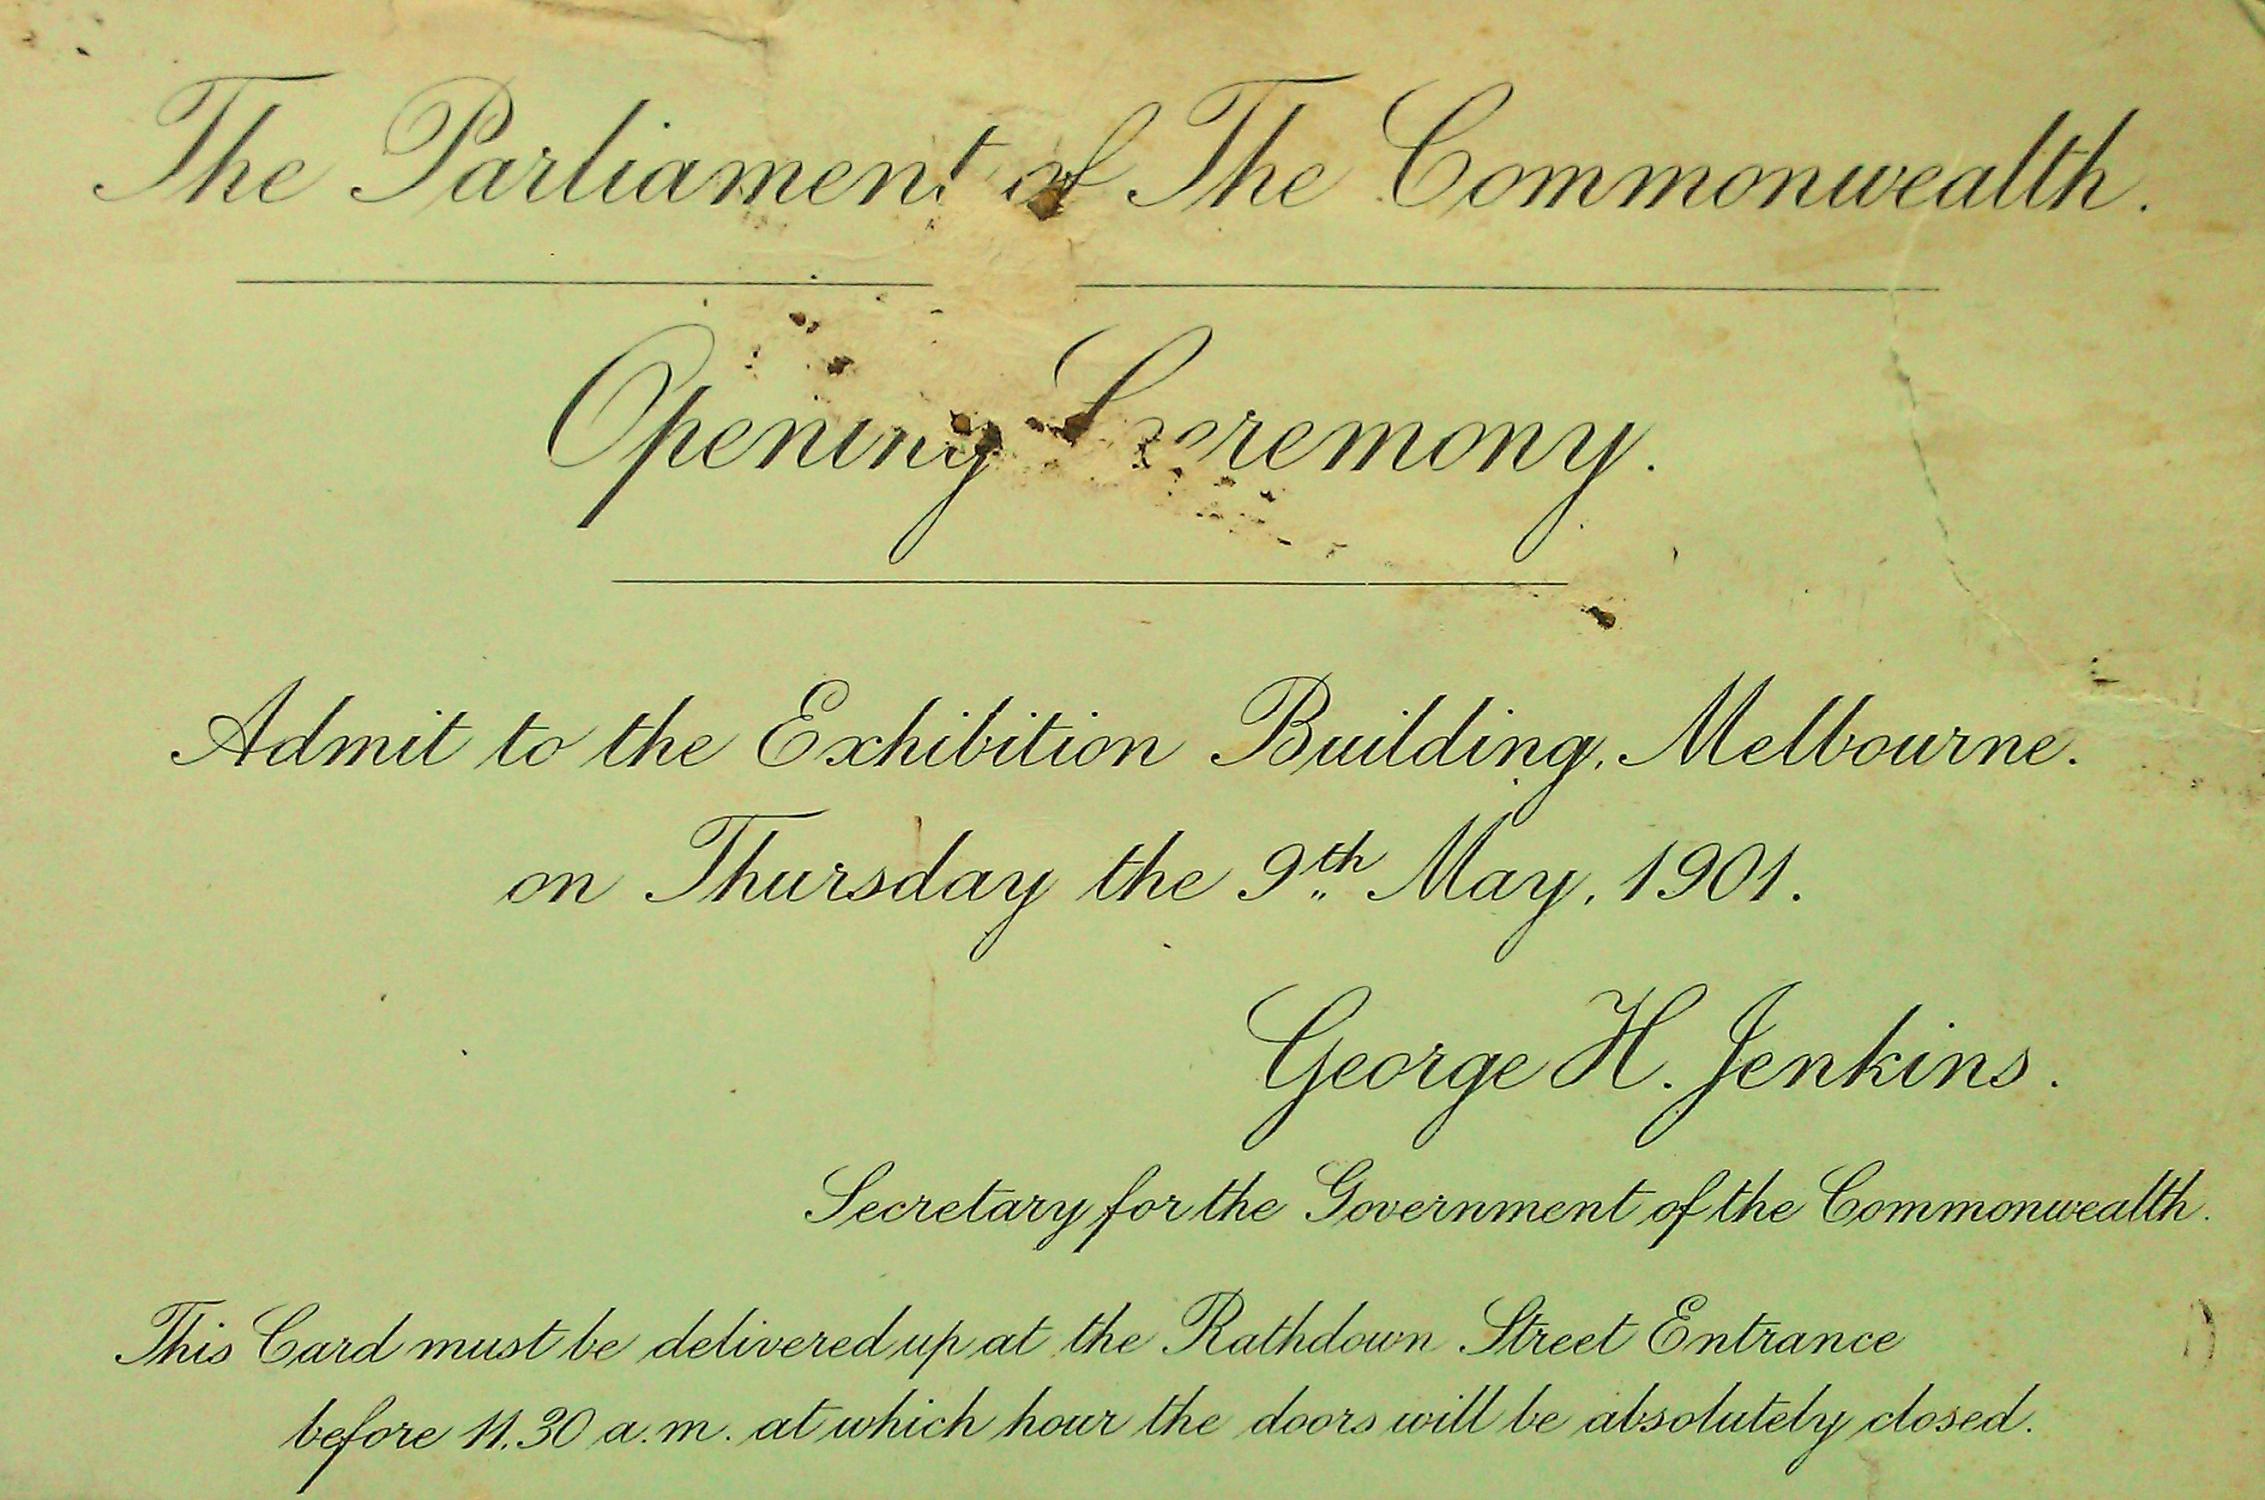 The Parliament of The Commonwealth.
Opening Ceremony.
Admit to the Exhibition Building, Melbourne.
on Thursday the 9th May, 1901.
George H. Jenkins.
Secretary for the Government of the Commonwealth.
This Card must be delivered up at the Rathdown Street Entrance
before 11.30 a.m. at which hour the doors will be absolutely closed.